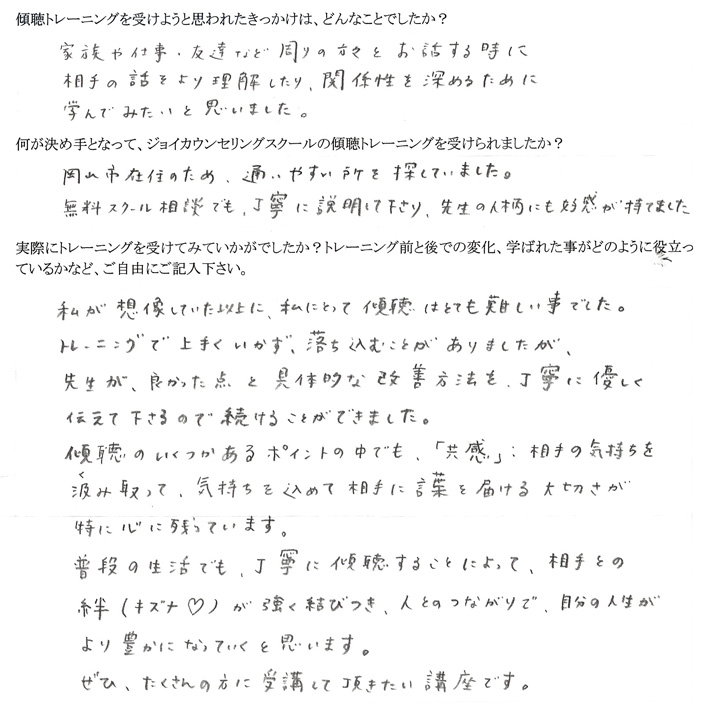 傾聴トレーニングを受けようと思われたきっかけは、どんなことでしたか？
家族や仕事・友達など周りの方々とお話する時に
相手の話をより理解したり、関係性を深めるために
学んでみたいと思いました。
何が決め手となって、ジョイカウンセリングスクールの傾聴トレーニングを受けられましたか？
岡山市在住のため、通いやすい所を探していました。
無料スクール相談でも、丁寧に説明して下さり、先生の人柄にも好感が持てました
実際にトレーニングを受けてみていかがでしたか？トレーニング前と後での変化、学ばれた事がどのように役立っ
ているかなど、ご自由にご記入下さい。
私が想像していた以上に、私にとって傾聴はとても難しい事でした。
トレーニングで上手くいかず、落ち込むことがありましたが、
先生が、良かった点と具体的な改善方法を、丁寧に優しく
伝えて下さるので続けることができました。
傾聴のいくつかあるポイントの中でも、「共感」：相手の気持ちを
汲み取って、気持ちを込めて相手に言葉を届ける大切さが
特に心に残っています。
普段の生活でも、丁寧に傾聴することによって、相手との
絆（キズナ♡）が強く結びつき、人とのつながりで、自分の人生が
より豊かになっていくと思います。
ぜひ、たくさんの方に受講して頂きたい講座です。